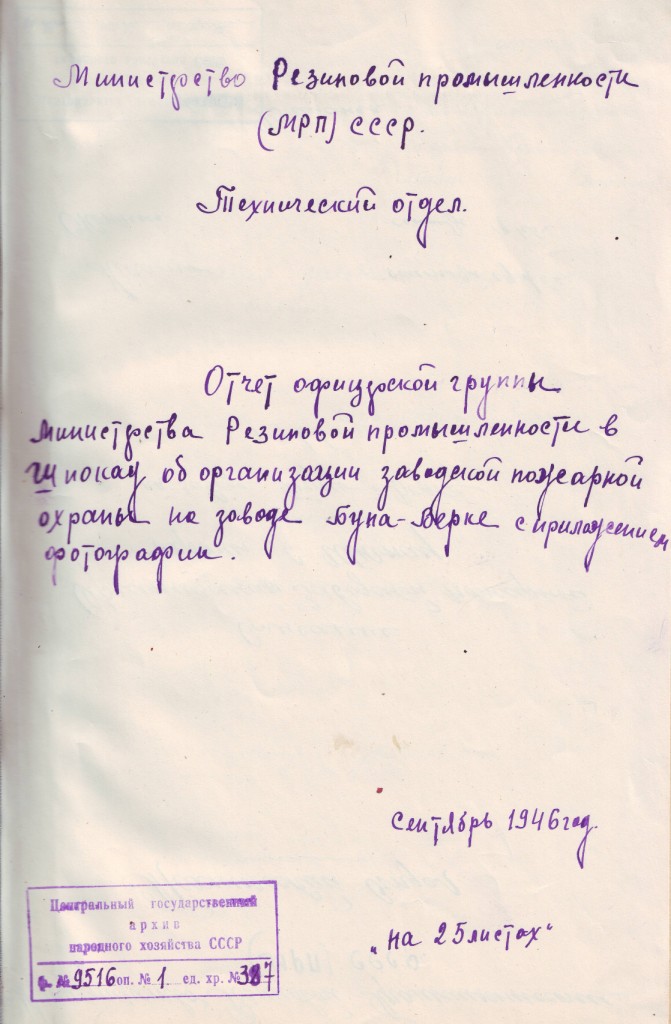 Министерство Резиновой промышленности
(МРП) СССР.
Технический отдел.
Отчет офицерской группы
Министерства Резиновой промышленности в
Шпокау об организации заводской пожарной
охраны на заводе Буна-Верке с приложением
фотографии.
Сентябрь 1946 год.
„на 25 листах"
Центральный государственный
архив
народного хозяйства СССР
ф. № 9516 оп. № 1 ед. хр. № 387